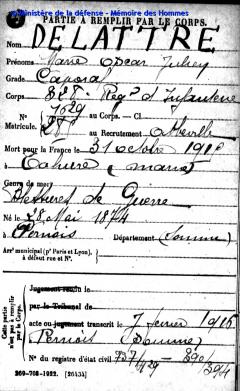 Ministère de la défense - Mémoire des Hommes
PARTIE À REMPLIR PAR LE CORPS.
Nom DELATTRE
Prénoms Marie Oscar
Grade Caporal
Corps 328e Regt d'Infanterie
N° 7529 au Corps. — Cl.
Matricule. au Recrutement Abbeville
Mort pour la France le 31 octobre
à Tahure (Marne)
Genre de mort Blessures de Guerre
Né le 28 Mai 1874
à Pernois Département (Somme)
Arrt municipal (pr Paris et Lyon),
à défaut rue et N°.
Cette partie
n'est pas à remplir
par le Corps.
Jugement rendu le
par le Tribunal de
acte ou jugement transcrit le 7 février 1916
Pernois (Somme)
N° du registre d'état civil
269-708-1922. [26434]